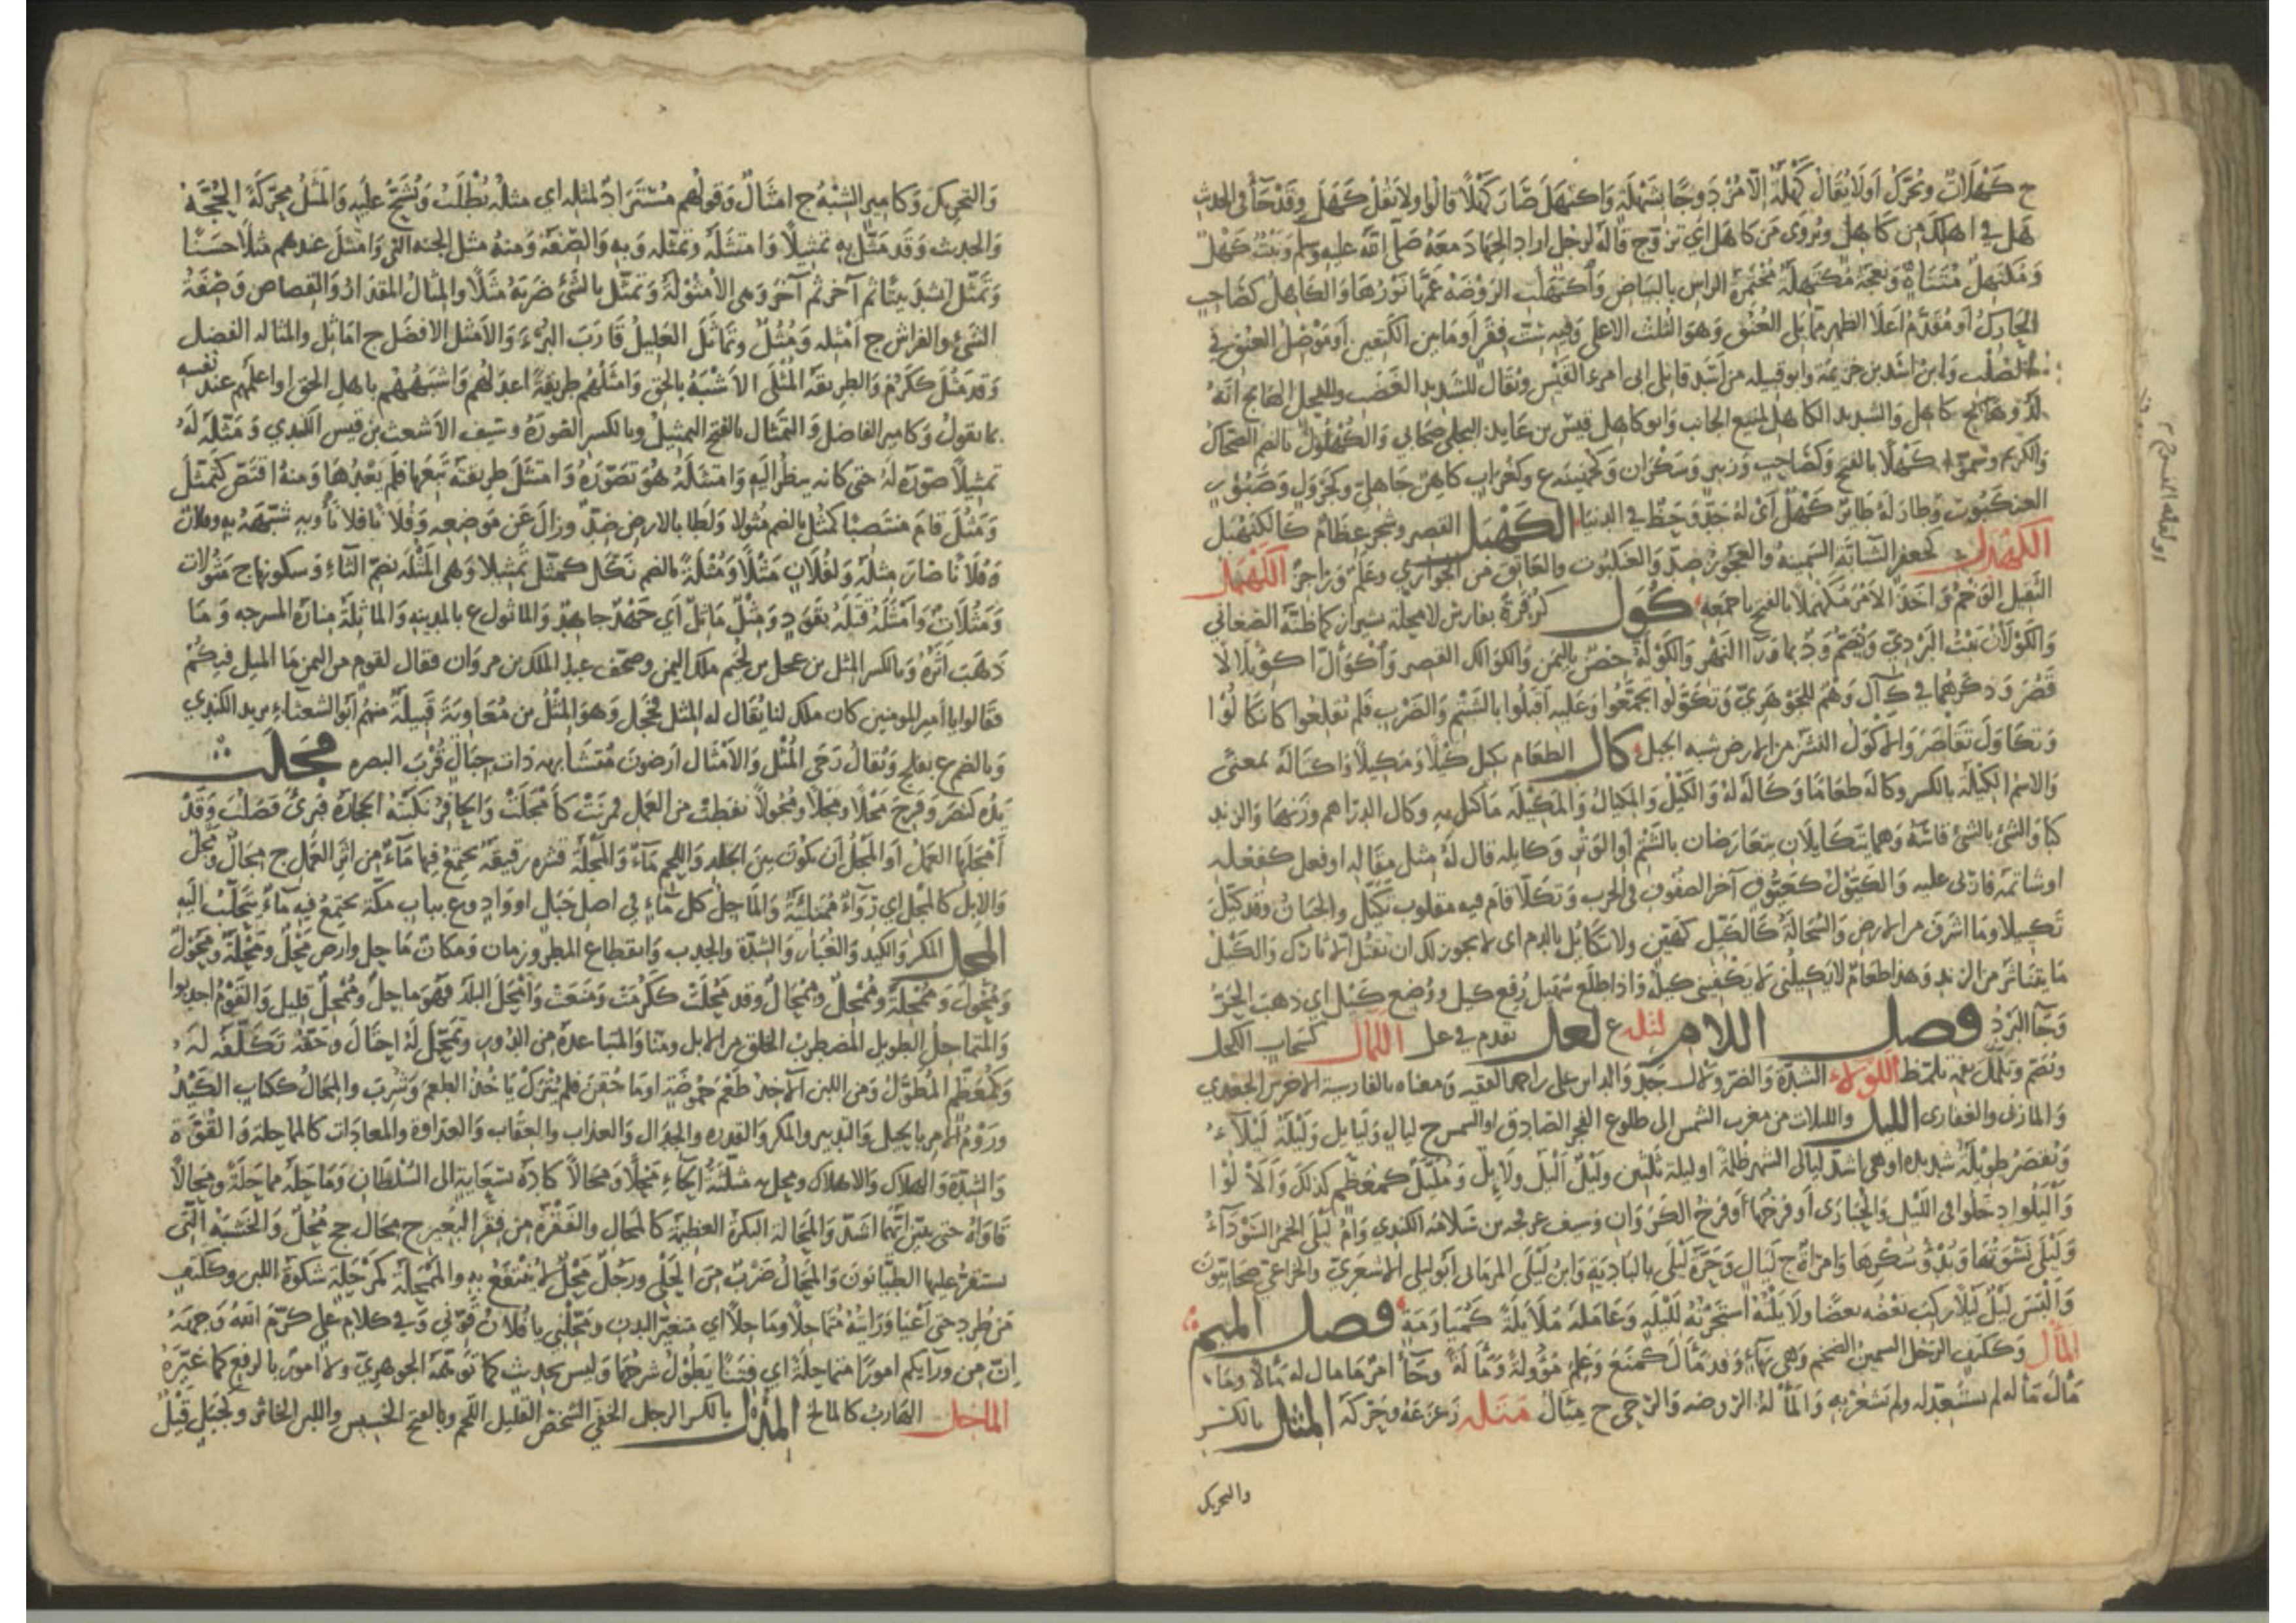 ج كَهْلَاتٌ ويُحَرَّكُ أو لا يُقالُ كَهْلَةٌ إلّا مُزْدَوِجًا بشَهْلَةٍ واكْتَهَلَ صَارَ كَهْلًا قالوا ولا تقل كَهَلَ وقد جَاءَ في الحديث
هَل في اهلكَ من كَاهِلٍ ويُروَى مَن كَاهَلَ أي تزوّج قاله لرجل اراد الجهاد معه صلى الله عليه وسلم ونَبْتٌ كَهْلٌ
ومُكْتَهِلٌ مُتَنَاهٍ ونعجة مُكْتَهِلَة مُخْتَمِرَة الراس بالبياض واكتَهَلَت الروضة عمّها نَوْرُها والكاهل كصَاحِب
الحَارِكُ أو مُقَدَّم أعلا الظهر مما يلي العُنُق وهو الثلث الاعلى وفيه ست فِقَر أو ما بين الكتفين أو مَوْصِل العنق في
الصُلب وابن أسَد بن خزيمة وابو قبيله من أسد قاتلى ابى امرء القيس ويُقال للشديد الغضب وللفحل الهايج انه
لَذُو كاهل والشديد الكاهل المنيع الجانب وابو كاهل قيس بن عايد البجلى صحابي والكُهْلُولُ بالضم الضحاك
والكريم وسَمَّوا كَهْلًا بالفتح وكصاحب وزبير وسكران وكجهينه ع وكغُراب كاهِنٌ جَاهلىّ وكجَرْوَل وصَبُور
العنكبوت وطارَ لَهُ طائِر كَهْلٌ أي له جَدّ وحَظّ في الدنيا الكَهْبَل القصير وشجر عِظامٌ كالكَنَهْبَل
الكهدل كجعفر الشابّة السمينة والعجوز ضِدّ والعنكبوت والعاتق من الجواري وعَلَم وراجز الكهمل
الثقيل الوَخم واخذ الامر مُكَهْمَلًا بالفتح باجمعه كُوَل كزُفَرَ ة بفارس لا محلة بشيراز كما ظنّه الصغاني
والكَوْلَانُ نَبْت البَرْدِيّ ويُضَمّ ود بما ورا النهر والكَوْلَة حصن باليمن والكوالل القصير واكْوَأَلّ اكْوِئْلالًا
قَصُرَ وذكرهما في ك أ ل وهْم للجوهريّ وتَكَوَّلوا تجمّعوا وعليه اقبلوا بالشتم والضرب فلم يقلعوا كانكالُوْا
وتكاوَلَ تقاصَرَ والاكْوَل النَشَز من الارض شبه الجبل كال الطعام يَكِيل كَيْلًا ومَكِيلًا واكتاله بمعنًى
والاسم الكِيلَة بالكسر وكاله طعامًا وكاله له والكَيْل والمِكْيال والمِكْيَلَة ما كيل به وكال الدراهم وزنها والزند
كبا والشئ بالشئ قاسَهُ وهما يتكايَلان يتعارضان بالشتم أو الوَتْر وكايله قال له مثل مقاله او فعل كفعله
او شاتمه فارْبى عليه والكَيُّول كعَيُّوق آخر الصفوف في الحرب وتكلّا قام فيه مقلوب تَكَيَّل والجبان وقد كَيَّلَ
تكييلا وما اشرف من الارض والسحالة كالكَيِّل كهَيِّن ولا تكايُل بالدم اي لا يجوز لك ان تقتل إلا ثارك والكَيْل
ما يتناثر من الزند وهذا طعامٌ لا يَكِيلُني لا يكفيني كيله واذا طلع سُهَيل رُفع كيل ووضع كيل اي ذهب الحَرُّ
وجآ البَرْد فصل اللام لتله ع لعل تقدم في عل اللآل كسحاب الكحل
ويُضَمّ وتَلَمَّلَ بفمه تلمّظ اللولاء الشدّة والضرّ ولال جدّ والد ابن على بن لال الفقيه ومعناه بالفارسية الاخرس الجعدي
والمازنى والغفارى الليل والليلات من مغرب الشمس الى طلوع الفجر الصادق او الشمس ج ليالٍ وليايل وليلة ليْلاءُ
وتُقصَر طويلة شديدة او هي اشد ليالى الشهر ظلمة او ليلة ثلثين وليل أَلْيَل ولايل ومُلَيَّل كمُعَظَّم كذلك وألَالُوْا
وأَلْيَلوا دخلوا في الليل والحُبارى أو فرخها أو فرخ الكَرَوان وسيف عرفجة بن سلامة الكندي وأُمّ ليلى الخمر السوداء
وليلى نَشْوتها وبَدْؤ سُكْرها وامرأة ج لَيالٍ وحَرّة ليلى بالبادية وابن ليلى المزنى ابو ليلى الاشعريّ والخزاعى صحابيّون
والبَسَ ليلٌ ليلًا ركب بعضه بعضًا ولايلْتُه استجرته لليلة وعامله مُلايَلَة كمُياوَمَة فصل الميم
المَأْل وككَتِف الرجل السمين الضخم وهي بهاء وقد مَأَل كمَنَعَ وعلم مُؤُولة ومَألَة وجآء امرٌ ما مال له مالا وما
مَأَلَ مَأْله لم يستعدّ له ولم يشعر به والمَأْلَة الروضة والرَحى ج مِئال مَتَله زَعْزَعَه وحَرَّكه المِثل بالكسر
والتحريك
والتحريك وكامير الشِبْه ج امثال وقولهم مُسْتَراد لمثله اي مثله يُطْلَب ويُشَحّ عليه والمَثَل محركة الحُجَّة
والحديث وقد مَثَّل به تمثيلًا وامتثَله وتمثّله وبه والصفة ومنه مثل الجنة التى وامتثل عندهم مثلا حسنًا
وتمثّل انشد بيتًا ثم آخر ثم آخر وهى الأُمْثُولة وتمثّل بالشئ ضربه مَثَلًا والمثال المقدار والقصاص وصفة
الشئ والفراش ج أمثله ومُثُل وتماثَلَ العليل قارَبَ البُرْءَ والأمثل الافضل ج اماثل والمثاله الفضل
وقد مَثُلَ ككرُمَ والطريقة المُثْلى الاشبه بالحق وامثلهم طريقة اعدلهم واشبههم باهل الحق او اعلمهم عند نفسه
بما يقول وكامير الفاضل والتَمثال بالفتح التمثيل وبالكسر الصورة وسيف الأشعث بن قيس الكندي ومَثَّله له
تمثيلًا صوّره له حتى كانه ينظر اليه وامتثله هو تصوّره وامتثل طريقته تبعها فلم يعْدُها ومنه اقتصّ كتمثّل
ومَثَلَ قام منتصبًا كمثُل بالضم مُثولا ولَطا بالارض ضِدّ وزال عن موضعه وفلانًا فلانًا وبه شبّهه به وفلان
فلانا صار مثله ولفلان مَثْلًا ومُثْلَة بالضم نكّل كمثّل تمثيلا وهى المَثُلَة بضم الثاء وسكونها ج مَثُولات
ومَثُلات وامثله قتله بقَوَد ومَثْل ماثِل أي جَهْد جاهد والماثول ع بالمدينة والماثِلة منارة المسرجه وما
ذهب أثَرُه وبالكسر المثل بن عجل بن لجيم ملك اليمن وصحّف عبد الملك بن مروان فقال لقوم من اليمن ما الميل فيكم
فقالوا يا امير المومنين كان ملك لنا يُقال له المثل فخجل وهو المِثل بن معاوية قبيلة منهم ابو الشعثاء يزيد الكندي
وبالضم ع بفلج ويُقالُ رَحَى المُثْل والأمثال ارضون متشابهة ذات جبال قُرْبَ البصره مجَلت
يده كنصَر وفرِح مَجْلًا ومَجَلًا ومُجولًا نفطت من العمل فمرنت كأمْجَلَت والحافر نكبته الحجارة فبرئ وصلب وقد
أمجلها العمل أو المَجْل أن يكون بين الجلد واللحم ماء والمَجْلة قشرة رقيقة يجتمع فيها ماء من اثر العمل ج مِجال ومَجْل
والابل كالمَجْل اي رِواءٌ ممتلئة والماجل كل ماء في اصل جبل او واد وع بباب مكة يجتمع فيه ماء يتحلّب اليه
المحل المكر والكيد والغبار والشدّة والجدب وانقطاع المطر وزمان ومكان ماحل وارض مَحْل ومَحْلة ومَحُول
ومُحُول ومُمْحِلة ومُمْحِل ومِمْحال وقد مَحُلَت ككرُمت ومنعت وأمْحَل البلد فهو ماحل ومُمْحِل قليل والقومُ اجدبوا
والمتماحل الطويل المضطرب الخلق من الابل ومنّا والمتباعدة من الدُور وتمَحَّل له احتال وحقّه تكلّفه له
وكمعظّم المُطَوَّل ومن اللبن الآخذ طَعْم حموضة او ما حُقن فلم يُترك يأخذ الطعم وشُرب والمِحال ككتاب الكيد
ورَوْم الامر بالحيل والتدبير والمكر والقدرة والجِدال والعذاب والعقاب والعداوة والمعادات كالمماحلة والقوّة
والشدّة والهلاك والاهلاك ومحل به مثلّثة الحاء مَحْلا ومِحالًا كاده بسعاية الى السلطان وماحله مماحلة ومِحالًا
قاواه حتى يتبيّن ايهما اشدّ والمَحالة البكرة العظيمة كالمَحال والفقرة من فِقَر البعير ج مَحال جج مُحُل والخشبة التى
يستقرّ عليها الطيّانون والمَحال ضرب من الحلْى ورجل مَحْل لا ينتفع به والمِمْحَلة كمرحلة شكوة اللبن وككتف
مَن طُرد حتى أعيا ورايته متماحلا وماحلًا اي متغيّر البدن ومحّلني يا فلان قوّني وفي كلام علي كرّم الله وجهه
انّ من ورايكم امورًا متماحلة اي فتنًا يطول شرحها وليس بحديث كما توهّمه الجوهريّ ولا امورٌ بالرفع كما غيّره
الماخل الهارب كالمالخ المذل بالكسر الرجل الخفي الشخص القليل اللحم وبالفتح الخسيس واللبن الخاثر وكجَبَل قَيْل